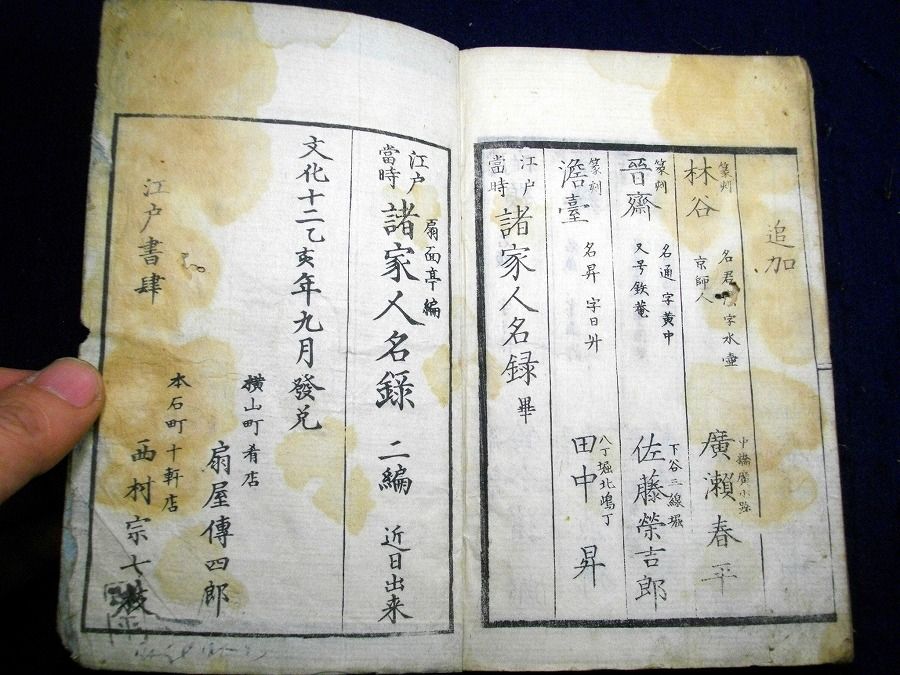 追加
篆刻
林谷
名君
字水壷
京師人
中橋廣小路
廣瀬春平
篆刻
晉齋
名通 字黄中
又号鉄菴
下谷三線堀
佐藤榮吉郎
篆刻
澹臺
名昇 字日升
八丁堀北嶋丁
田中 昇
江戸
當時
諸家人名録 畢
扇面亭編
江戸
當時
諸家人名録 二編 近日出来
文化十二乙亥年九月發兌
江戸書肆
横山町肴店
扇屋傳四郎
本石町十軒店
西村宗七